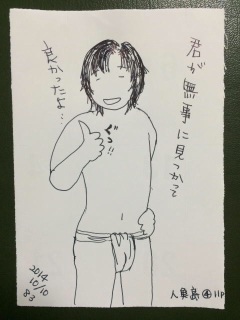 君が無事に見つかって
良かったよ…
ぐっ!!
2014
10/10
83
人魚島④11P